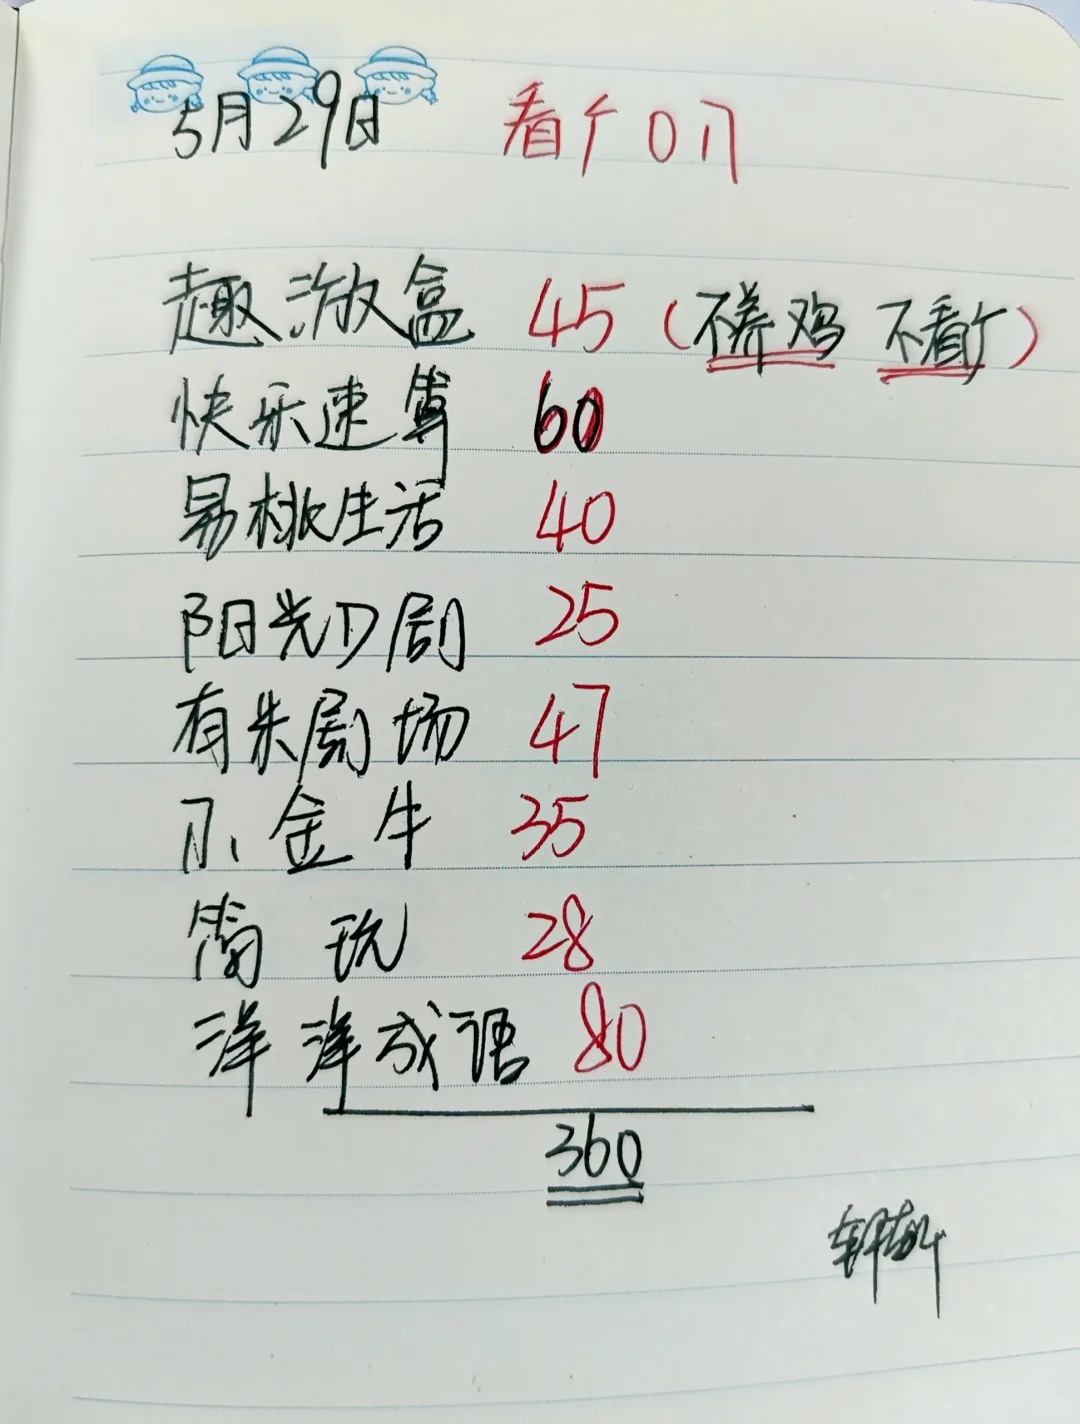 5月29日 看广017
趣游盒 45 (不养鸡 不看广)
快乐速算 60
易桃生活 40
阳光刀剧 25
有朱剧场 47
小金牛 35
简玩 28
洋洋成语 80
360